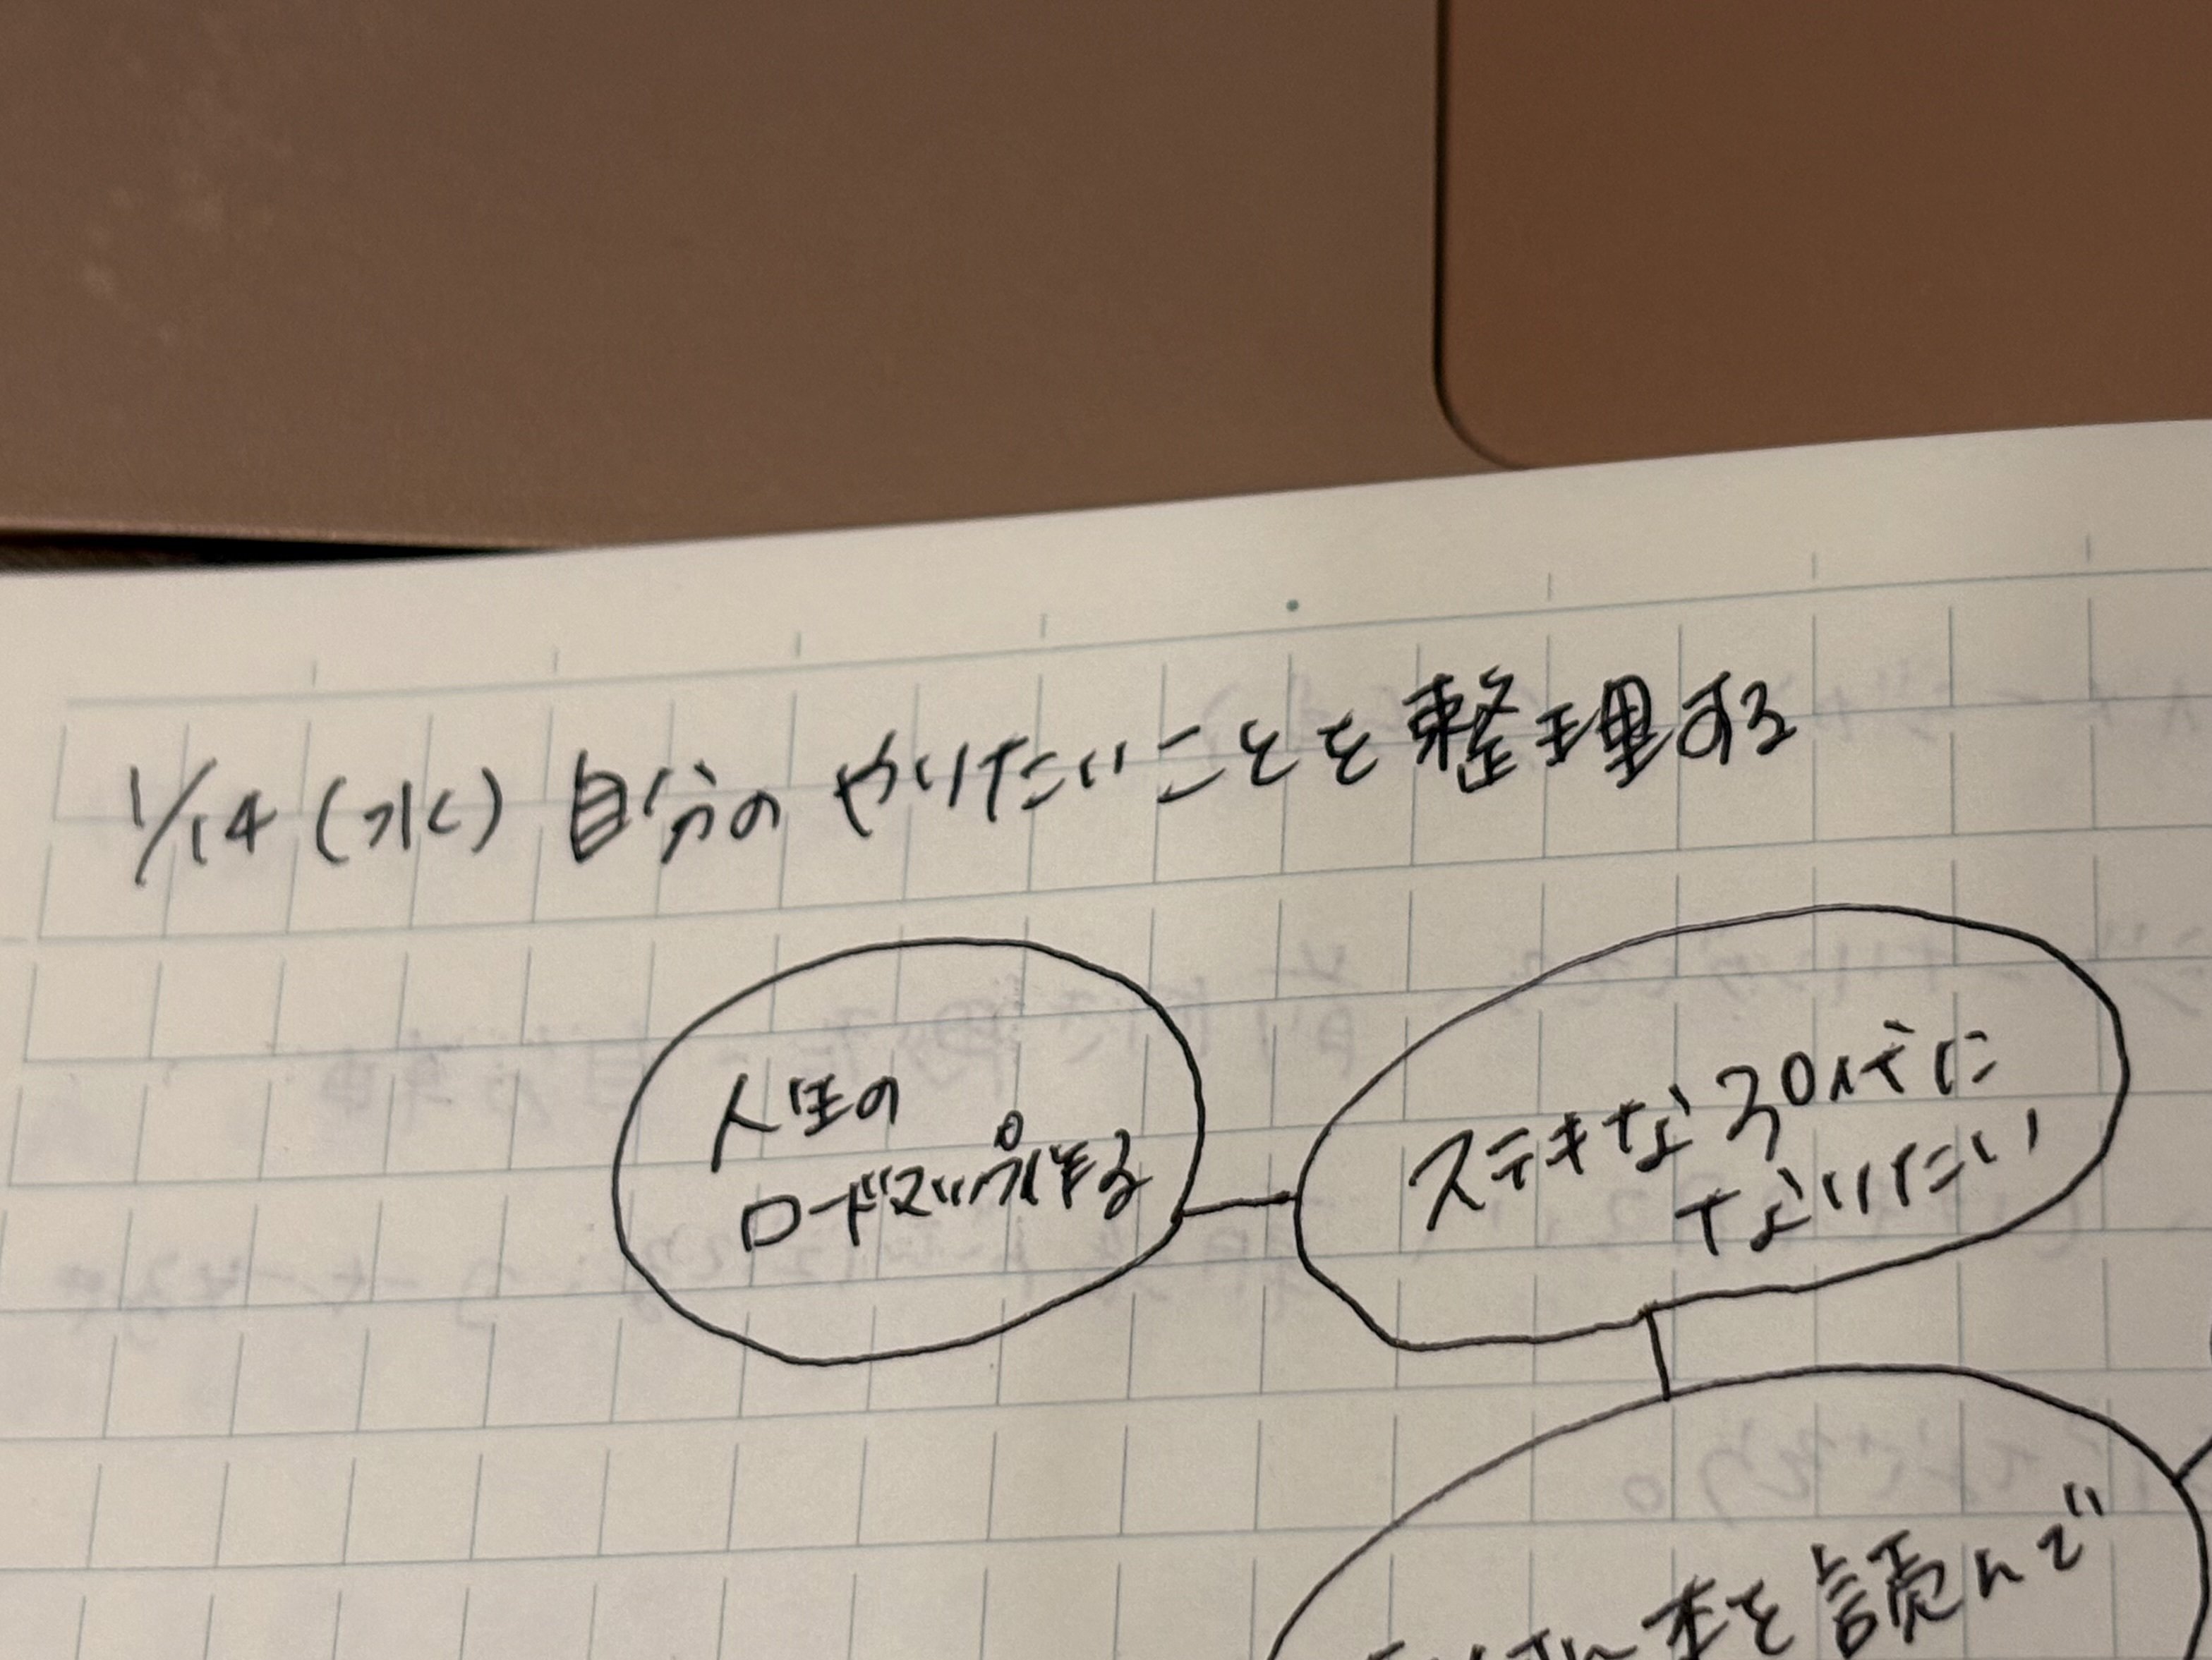 1/14(水) 自分のやりたいことを整理する
人生の
ロードマップ作る
ステキな30代に
なりたい
本を読んで